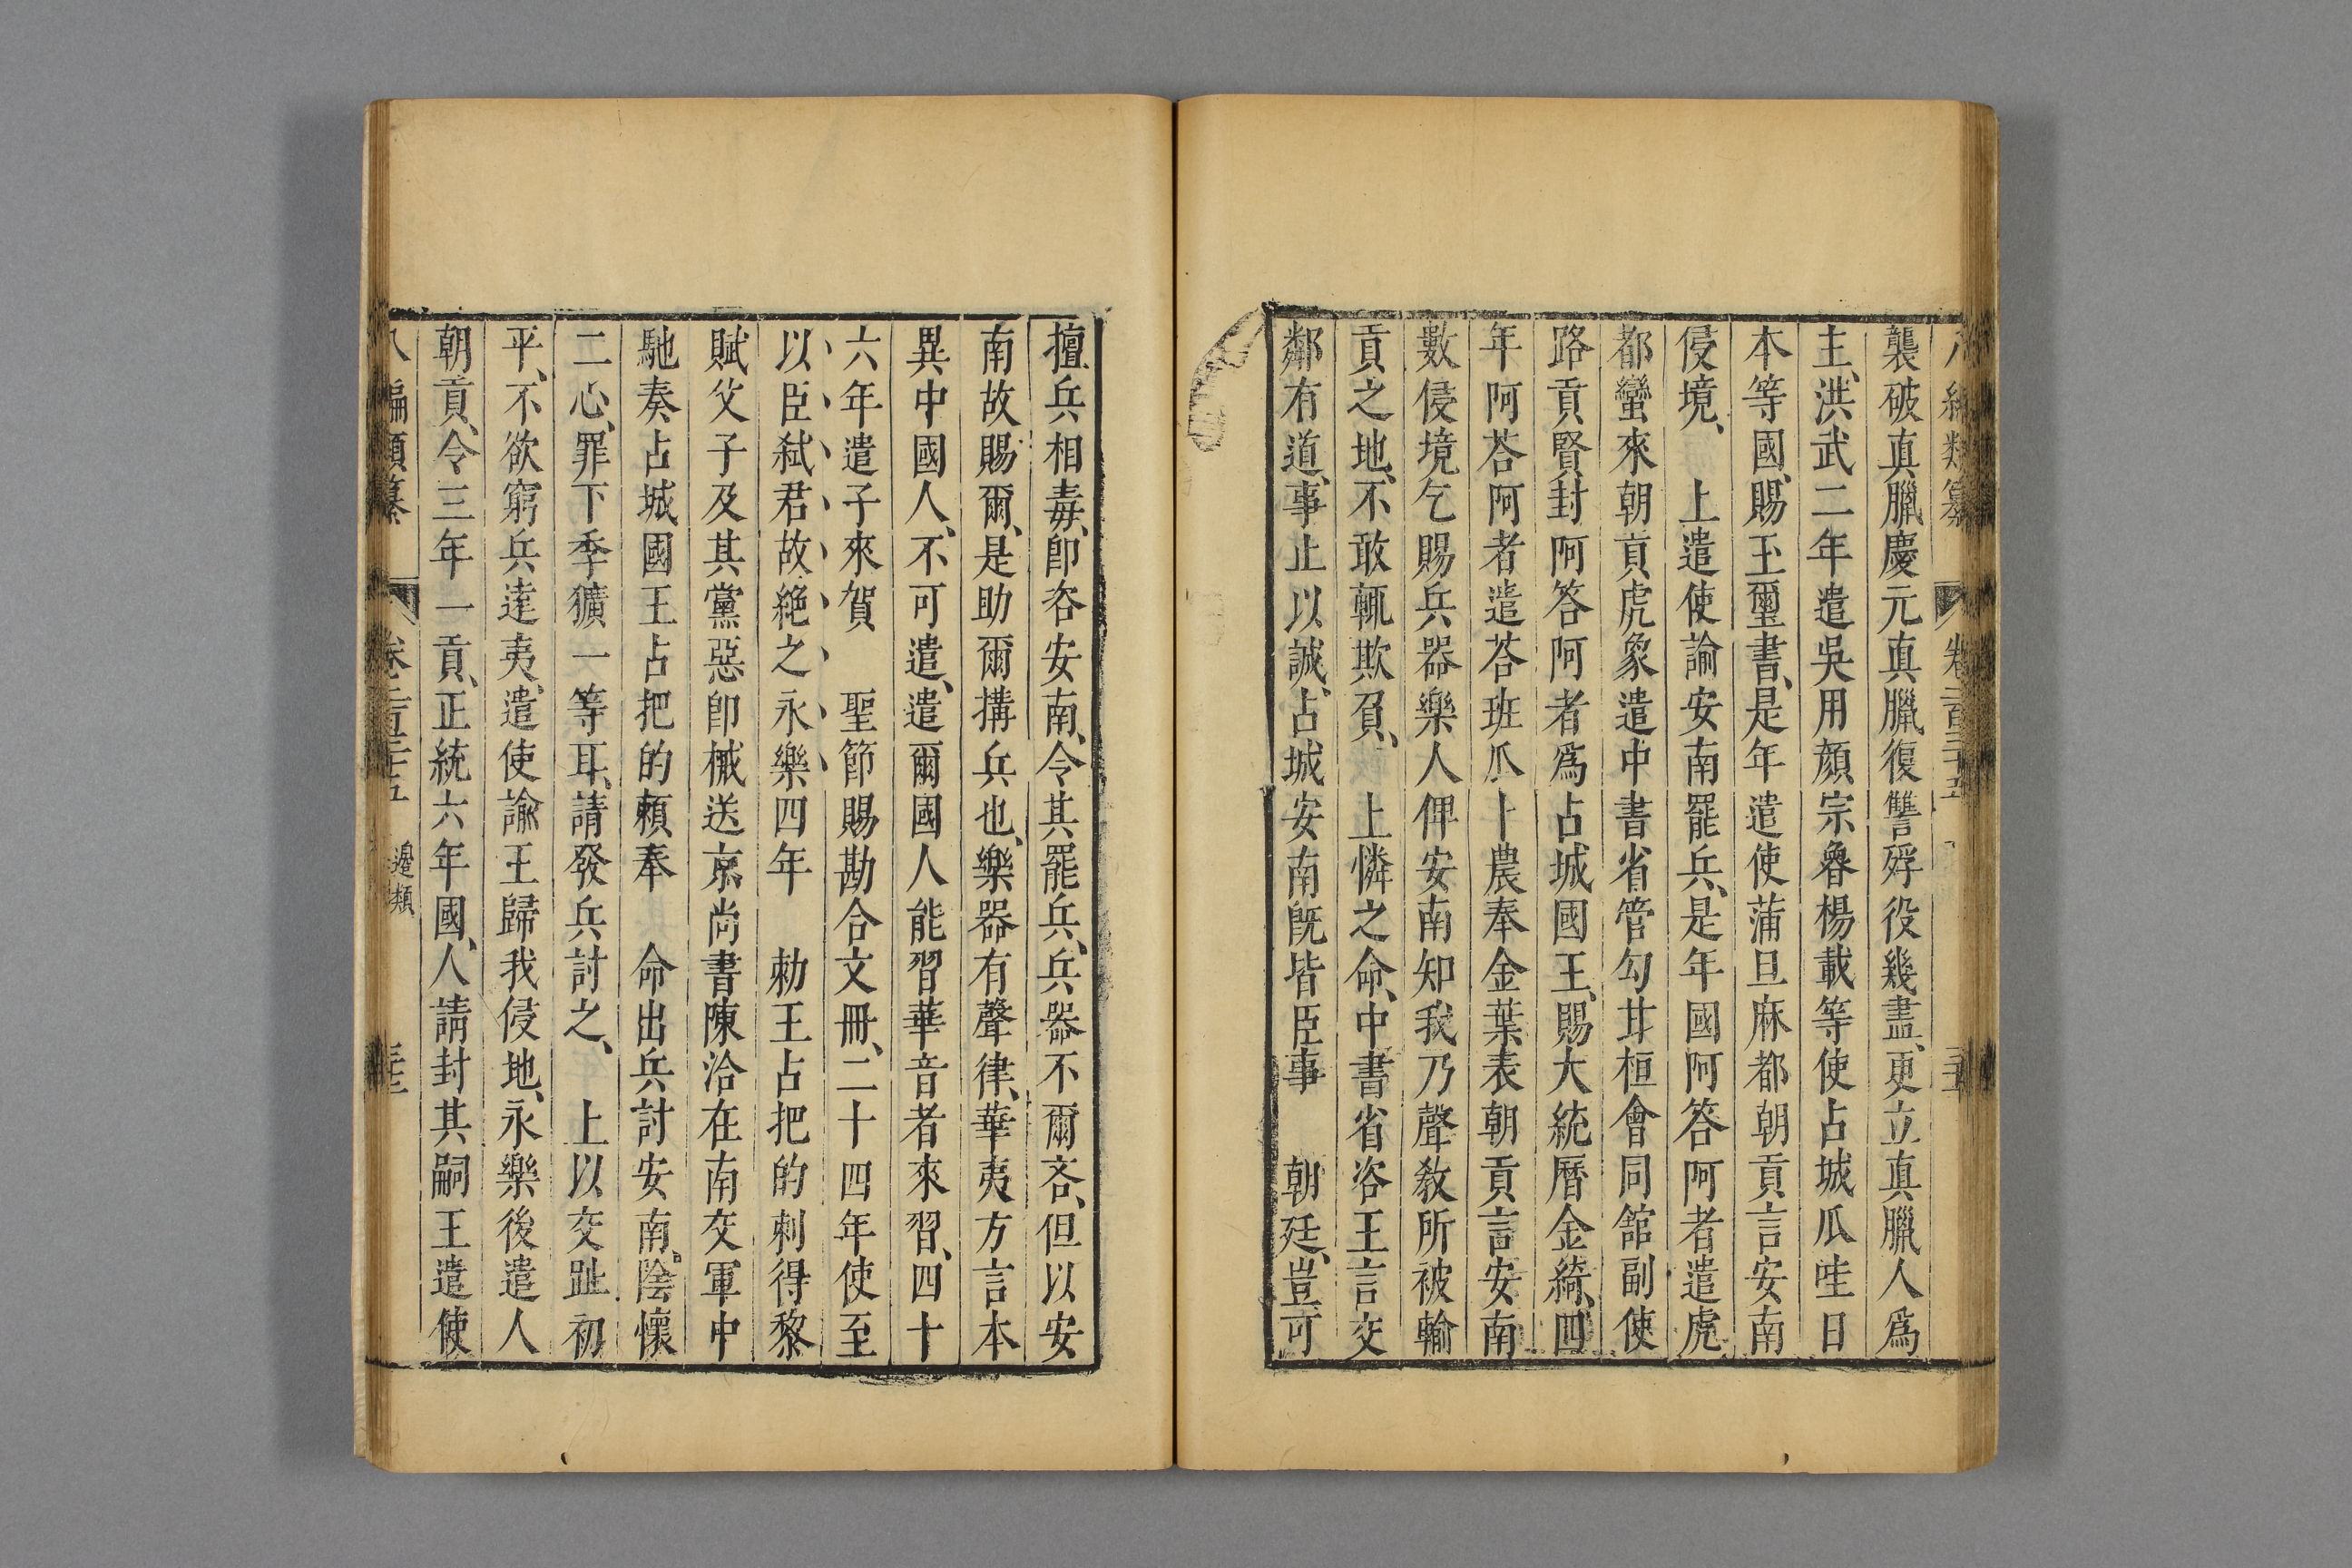 八編類纂 卷二百三十五
襲破真臘慶元真臘復讐殍役幾盡、更立真臘人爲
主、洪武二年遣吳用顏宗魯楊載等使占城瓜哇日
本等國、賜王璽書、是年遣使蒲旦麻都朝貢言安南
侵境、 上遣使諭安南罷兵、是年國阿答阿者遣虎
都蠻來朝貢虎象遣中書省管勾甘桓會同舘副使
路貢賢封阿答阿者爲占城國王、賜大統曆金綺、四
年阿荅阿者遣荅班瓜卜農奉金葉表朝貢言安南
數侵境乞賜兵器樂人俾安南知我乃聲敎所被輸
貢之地、不敢輒欺負、 上憐之命、中書省咨王言交
鄰有道、事止以誠、占城安南旣皆臣事 朝廷、豈可
擅兵相毒、卽咨安南、令其罷兵、兵器不爾吝、但以安
南故賜爾、是助爾搆兵也、樂器有聲律、華夷方言本
異中國人、不可遣、遣爾國人能習華音者來習、四十
六年遣子來賀 聖節賜勘合文冊、二十四年使至
以臣弑君故絶之永樂四年 勑王占把的剌得黎
賦父子及其黨惡卽械送京尚書陳洽在南交軍中
馳奏占城國王占把的賴奉 命出兵討安南。陰懷
二心、罪下季獷一等耳、請發兵討之、 上以交趾初
平、不欲窮兵遠夷、遣使諭王歸我侵地、永樂後遣人
朝貢、令三年一貢、正統六年國、人請封其嗣王遣使
八編類纂 卷二百三十五 邊類